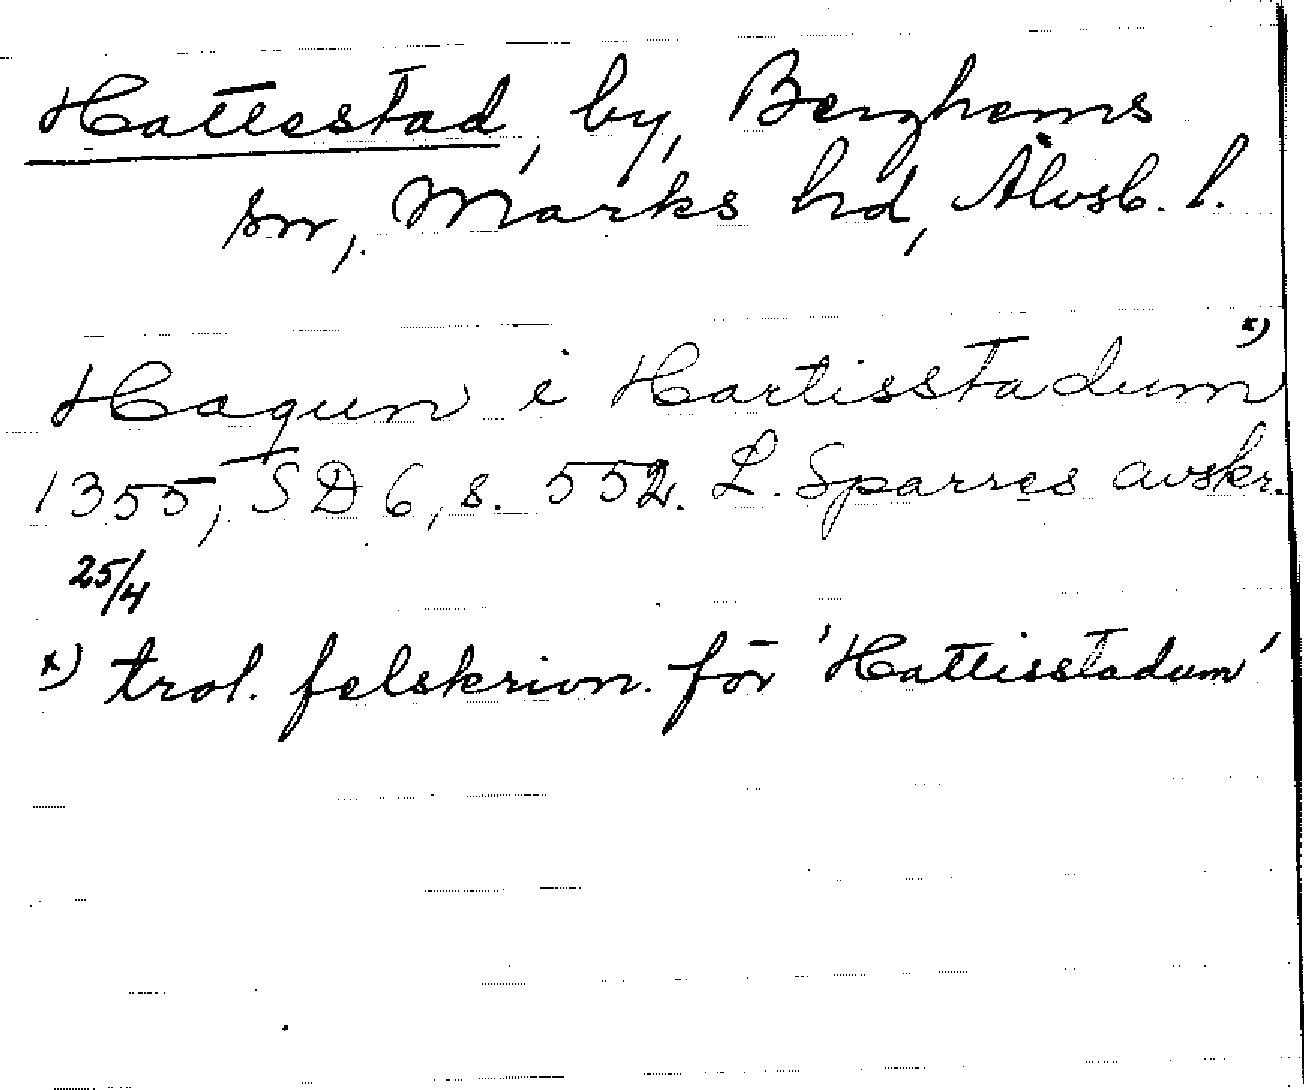 Hattestad, by, Berghems
sn, Marks hd, Älvsb. l.
Haqun i Hartisstadum x)
1355, SD 6, s. 552. L. Sparres avskr.
25/4
x) trol. felskrivn. för 'Hattisstadum'